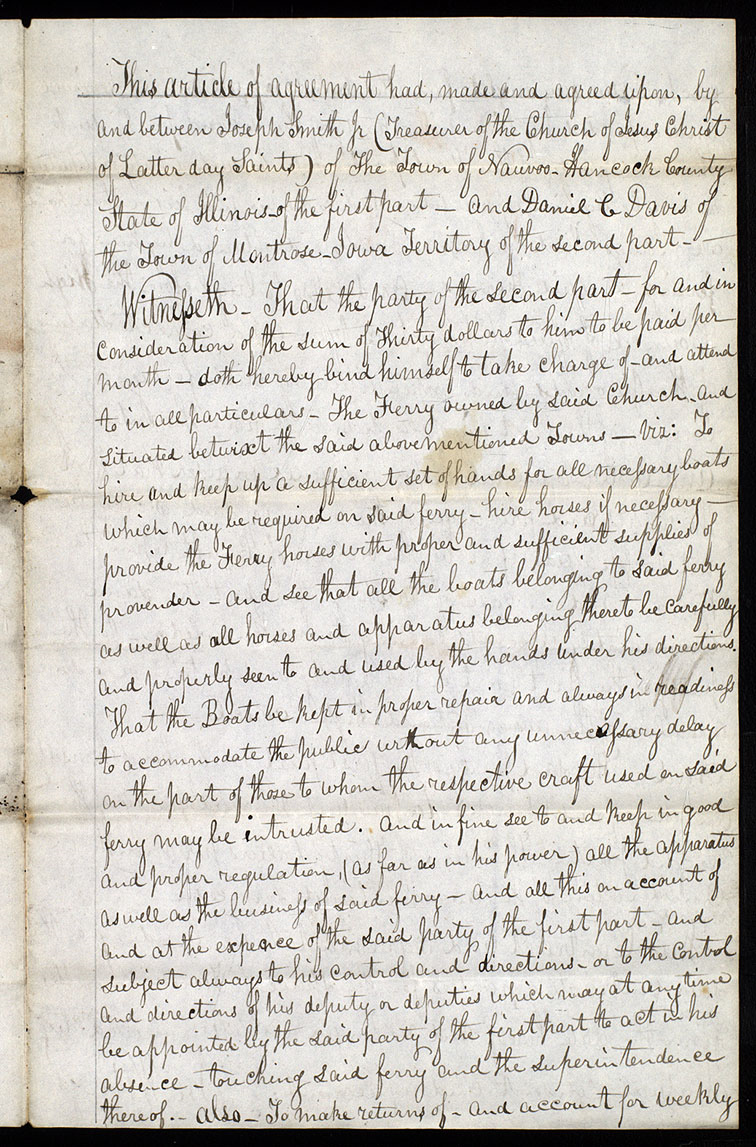 This article of agreement had, made and agreed upon, by
and between Joseph Smith Jr (Treasurer of the Church of Jesus Christ
of Latter day Saints) of The Town of Nauvoo - Hancock County
State of Illinois - of the first part - and Daniel C Davis of
the Town of Montrose - Iowa Territory of the second part -
Witnesseth - That the party of the second part - for and in
consideration of the sum of Thirty dollars to him to be paid per
month - doth hereby bind himself to take charge of - and attend
to in all particulars - The Ferry owned by said Church - and
situated betwixt the said above mentioned Towns - viz: To
hire and keep up a sufficient set of hands for all necessary boats
which may be required on said ferry - hire horses if necessary -
provide the Ferry horses with proper and sufficient supplies of
provender - and see that all the boats belonging to said ferry
as well as all horses and apparatus belonging thereto be carefully
and properly seen to and used by the hands under his directions.
That the Boats be kept in proper repair and always in readiness
to accommodate the public without any unnecessary delay
on the part of those to whom the respective craft used on said
ferry may be intrusted. and in fine see to and keep in good
and proper regulation, (as far as in his power) all the apparatus
as well as the business of said ferry - and all this on account of
and at the expence of the said party of the first part - and
subject always to his control and directions - or to the control
and directions of his deputy or deputies which may at any time
be appointed by the said party of the first part to act in his
absence - touching said ferry and the superintendence
thereof. - also - To make returns of - and account for weekly